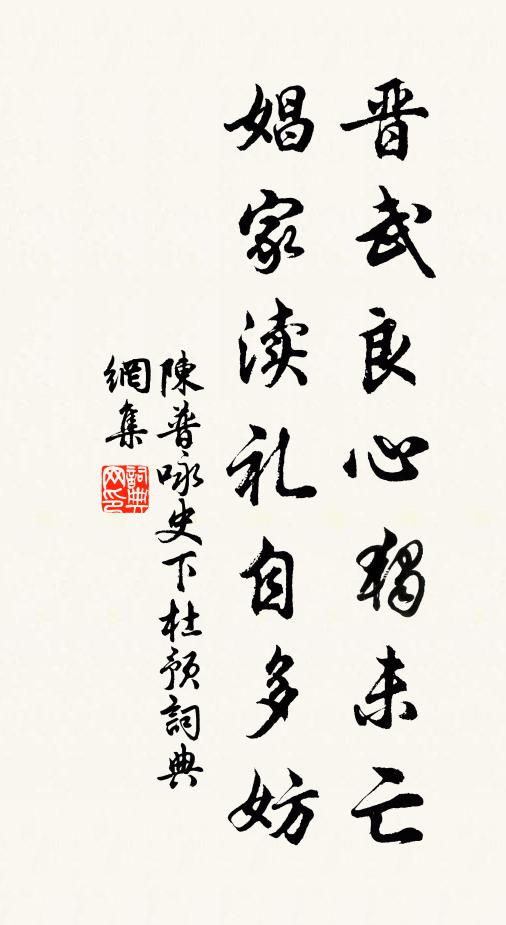 晋武良心独未亡
娼家渎礼自多妨
陳普咏史下杜預詞典
網集
詞典
网印